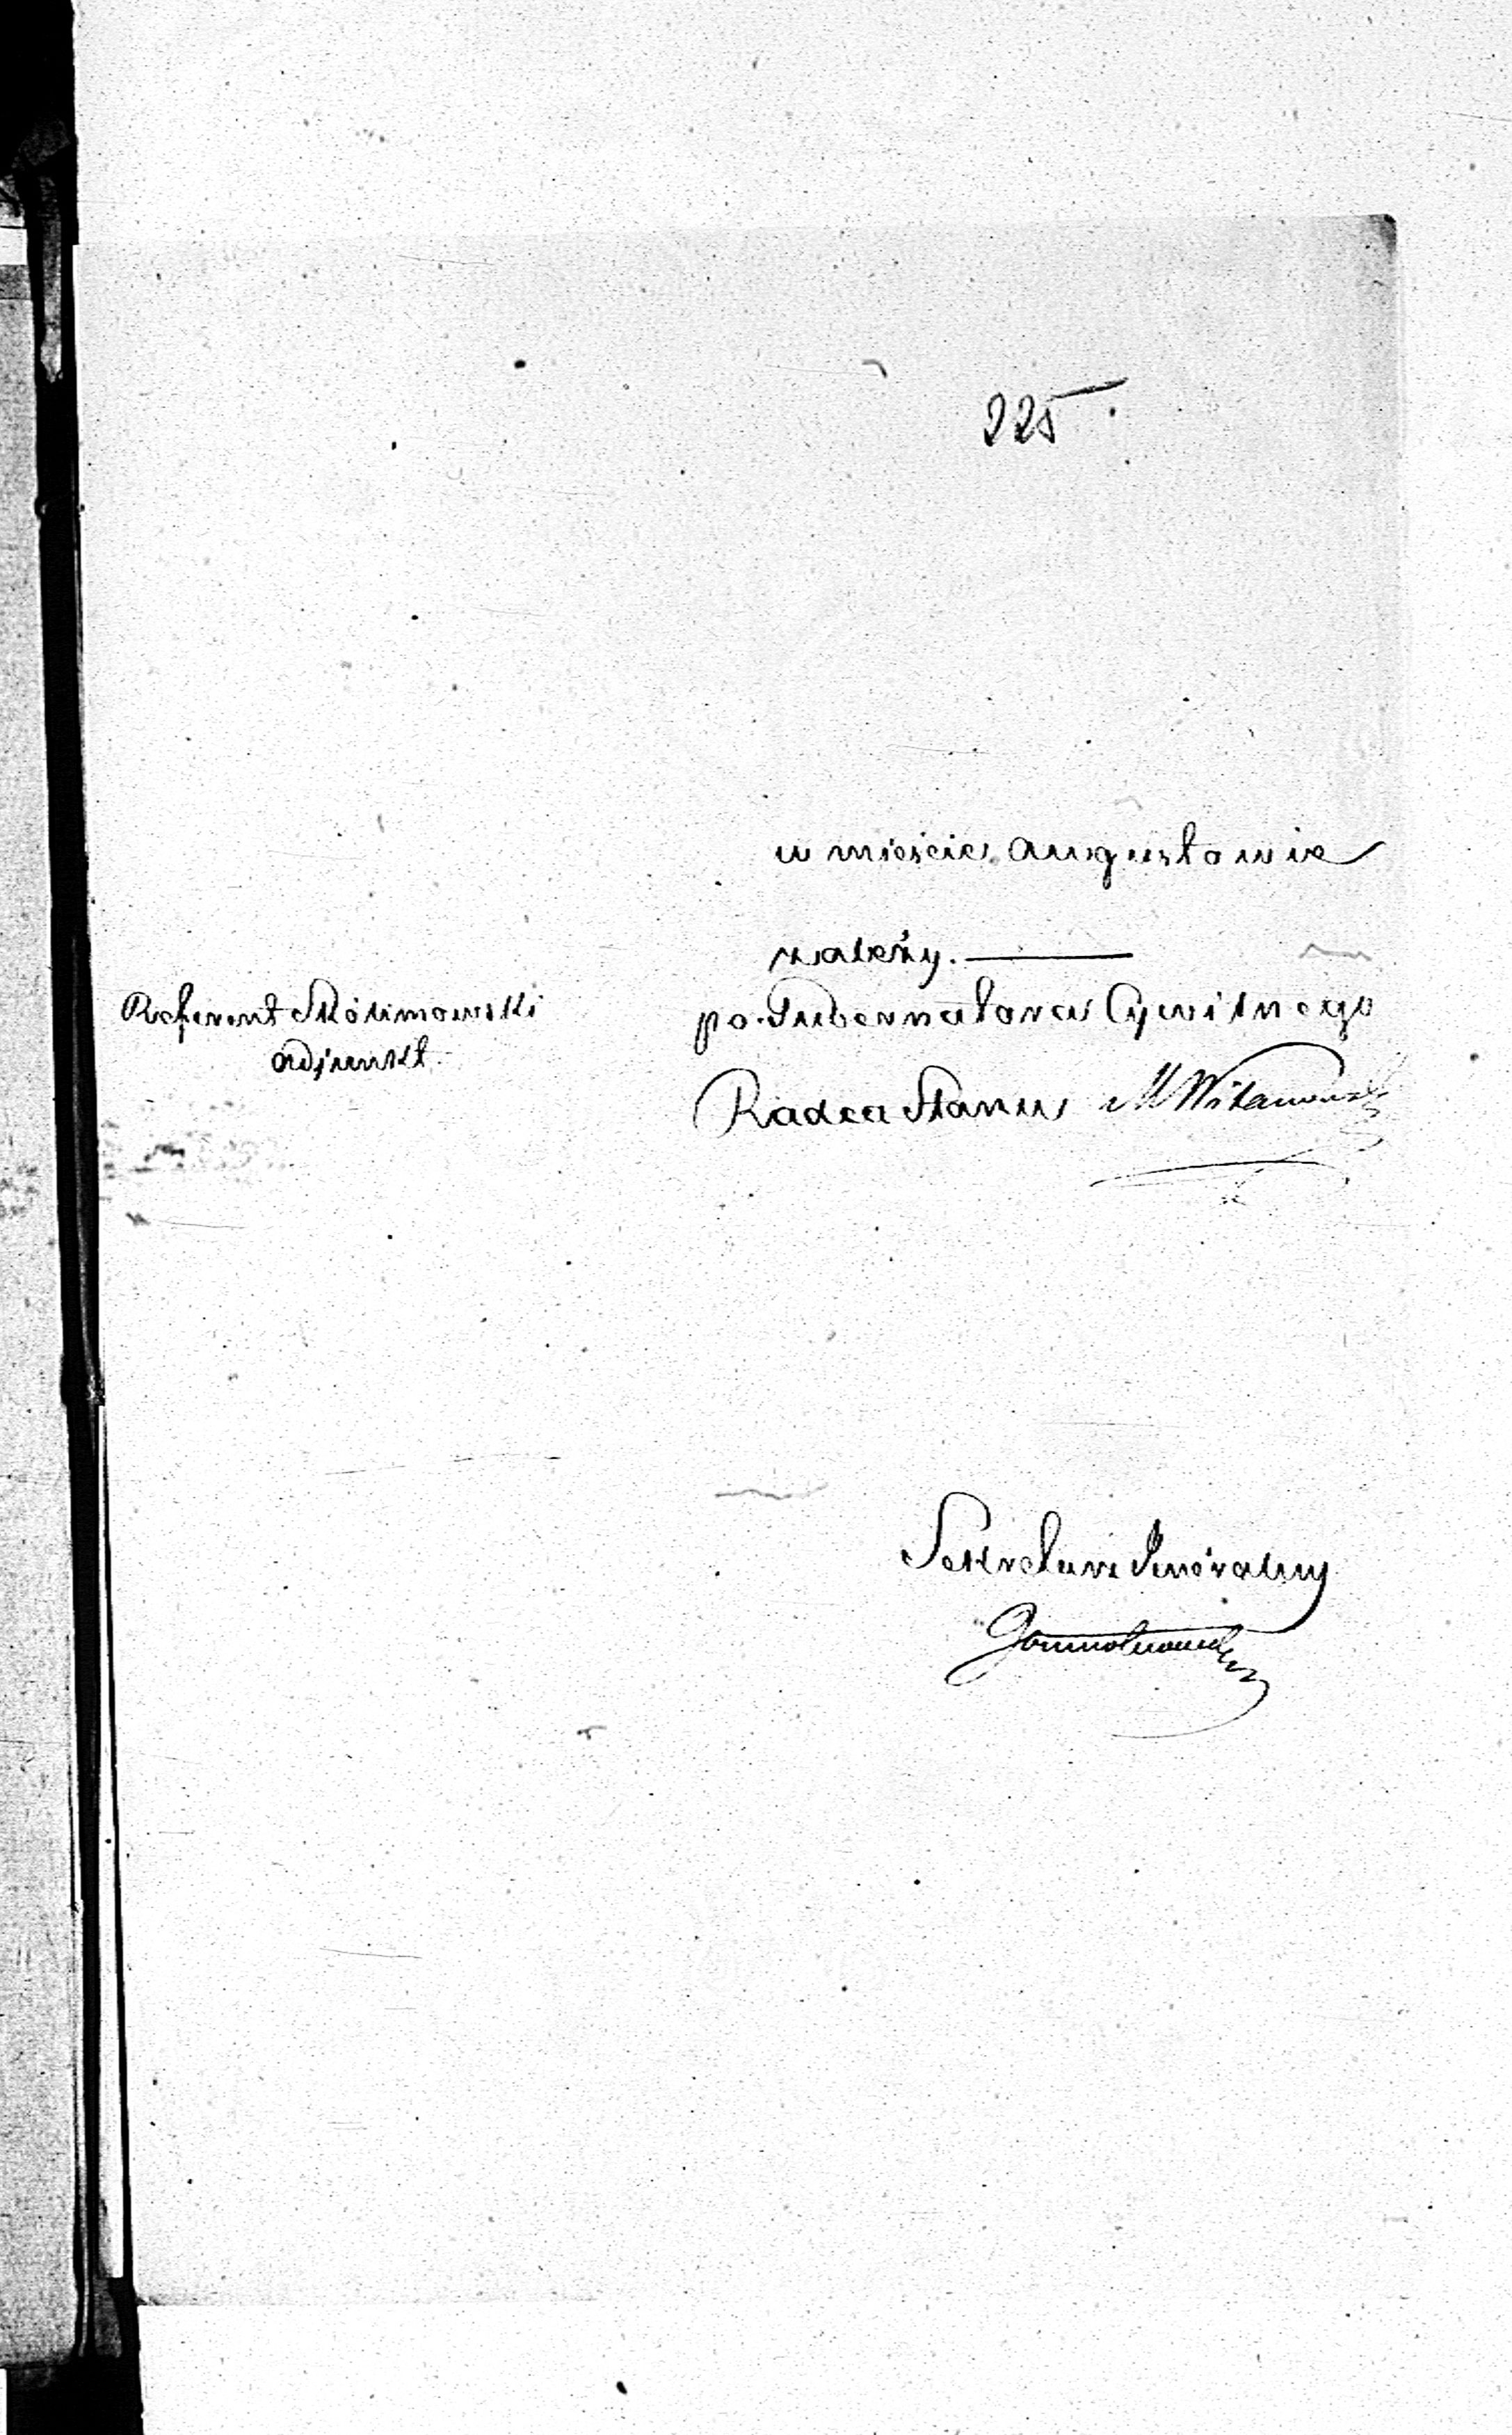 225
w mieście Augustowie
należy.
Referent Skólimowski
Adjunkt
po. Gubernatora Cywilnego
Radca Stanu M Witanowski
Sekretarz Jeneralny